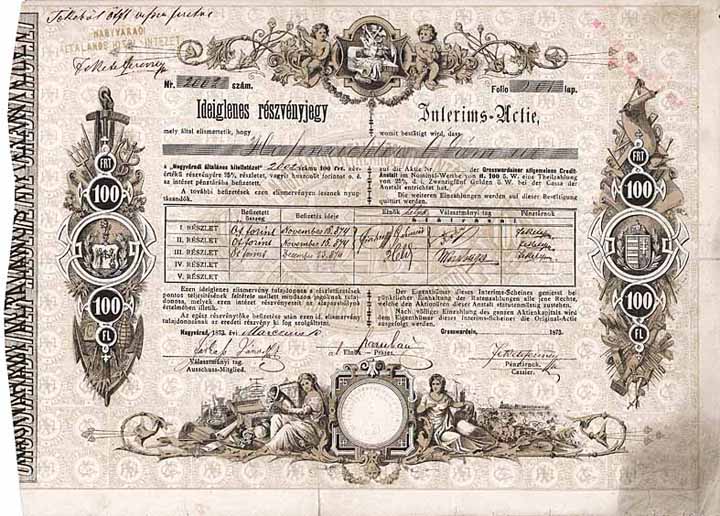 NAGYVÁRADI
ÁLTALÁNOS HITEL-INTÉZET
Nr. 2002 szám. Folio lap.
Ideiglenes részvényjegy
Interims-Actie,
mely által elismertetik, hogy
womit bestätigt wird, dass
a „Nagyváradi általános hitelintézet" 2002 számu 100 frt.
értékü részvényére 25% részletet, vagyis huszonöt forintot o. é.
az intézet pénztárába befizetett.
A további befizetések ezen elismervényen lesznek nyugtázandók.
auf die Aktie Nr. der Grosswardeiner allgemeinen Credit-
Anstalt im Nominal-Werthe von fl. 100 ö. W. eine Theilzahlung
von 25% d. i. Zwanzigfünf Gulden ö W. bei der Cassa der
Anstalt entrichtet hat.
Die weiteren Einzahlungen werden auf dieser Bestätigung
quittirt werden.
Befizetett összeg
Befizetés ideje
Elnök
Választmányi tag
Pénztárnok
I. RÉSZLET Öt forint November 15. 874
II. RÉSZLET Öt forint November 15. 874
III. RÉSZLET Öt forint December 874
IV. RÉSZLET
V. RÉSZLET
Ezen ideiglenes elismervény tulajdonosa a részletfizetések
pontos teljesitésének feltétele mellett mindazon jogoknak tulajdonosa,
melyek ezen intézet részvényeseit az alapszabályok
értelmében illetik.
Az egész részvénytőke befizetése után ezen id. elismervény
tulajdonosának az eredeti részvény ki fog szolgáltatni.
Der Eigenthümer dieses Interims-Scheines geniesst bei
pünktlicher Einhaltung der Ratenzahlungen alle jene Rechte,
welche den Aktionären dieser Anstalt statutenmässig zustehen.
Nach voller Einzahlung des ganzen Aktienkapitals wird
dem Eigenthümer dieses Interims-Scheines die Original-Actie
ausgefolgt werden.
Nagyvárad, 1873. évi Marczius
Grosswardein, 1873.
Választmányi tag.
Ausschuss-Mitglied.
Elnök — Präses.
Pénztárnok.
Cassier.
FRT
100
100
FL
FRT
100
100
FL